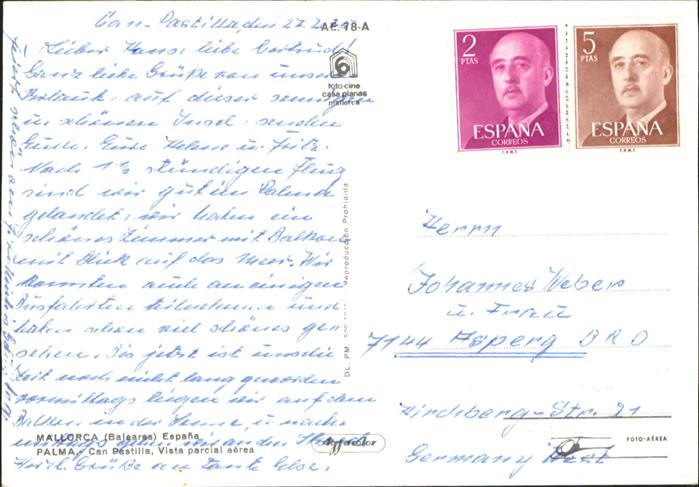 Can-Pastilla, den 27.2.
AE. 78-A
Lieber Hans, liebe Gertrud!
Ganz liebe Grüße von unserem
Urlaub, auf dieser sonnigen
u. schönen Insel, senden
Euch, Eure Helene u. Fritz.
Nach 1½ stündigen Flug
sind wir gut in Palma
gelandet, wir haben ein
schönes Zimmer mit Balkon
mit Blick auf das Meer. Wir
konnten auch an einigen
Ausfahrten teilnehmen und
haben schon viel schönes ge=
sehen. Bis jetzt ist uns die
Zeit noch nicht lang geworden
vormittags liegen wir auf dem
Balkon in der Sonne, u. nach=
mittags gehen wir an den Strand
Herzl. Grüße an Tante Else.
foto-cine
casa planas
mallorca
Reproducción Prohibida
DL. PM.
MALLORCA (Baleares) España
PALMA.- Can Pastilla, Vista parcial aérea
2
PTAS
ESPAÑA
CORREOS
F.N.M.T.
5
PTAS
ESPAÑA
CORREOS
F.N.M.T.
Herrn
Johannes Weber
u. Frau
7144 Asperg BRD
Kirchberg-Str. 21
Germany West
FOTO-AÉREA